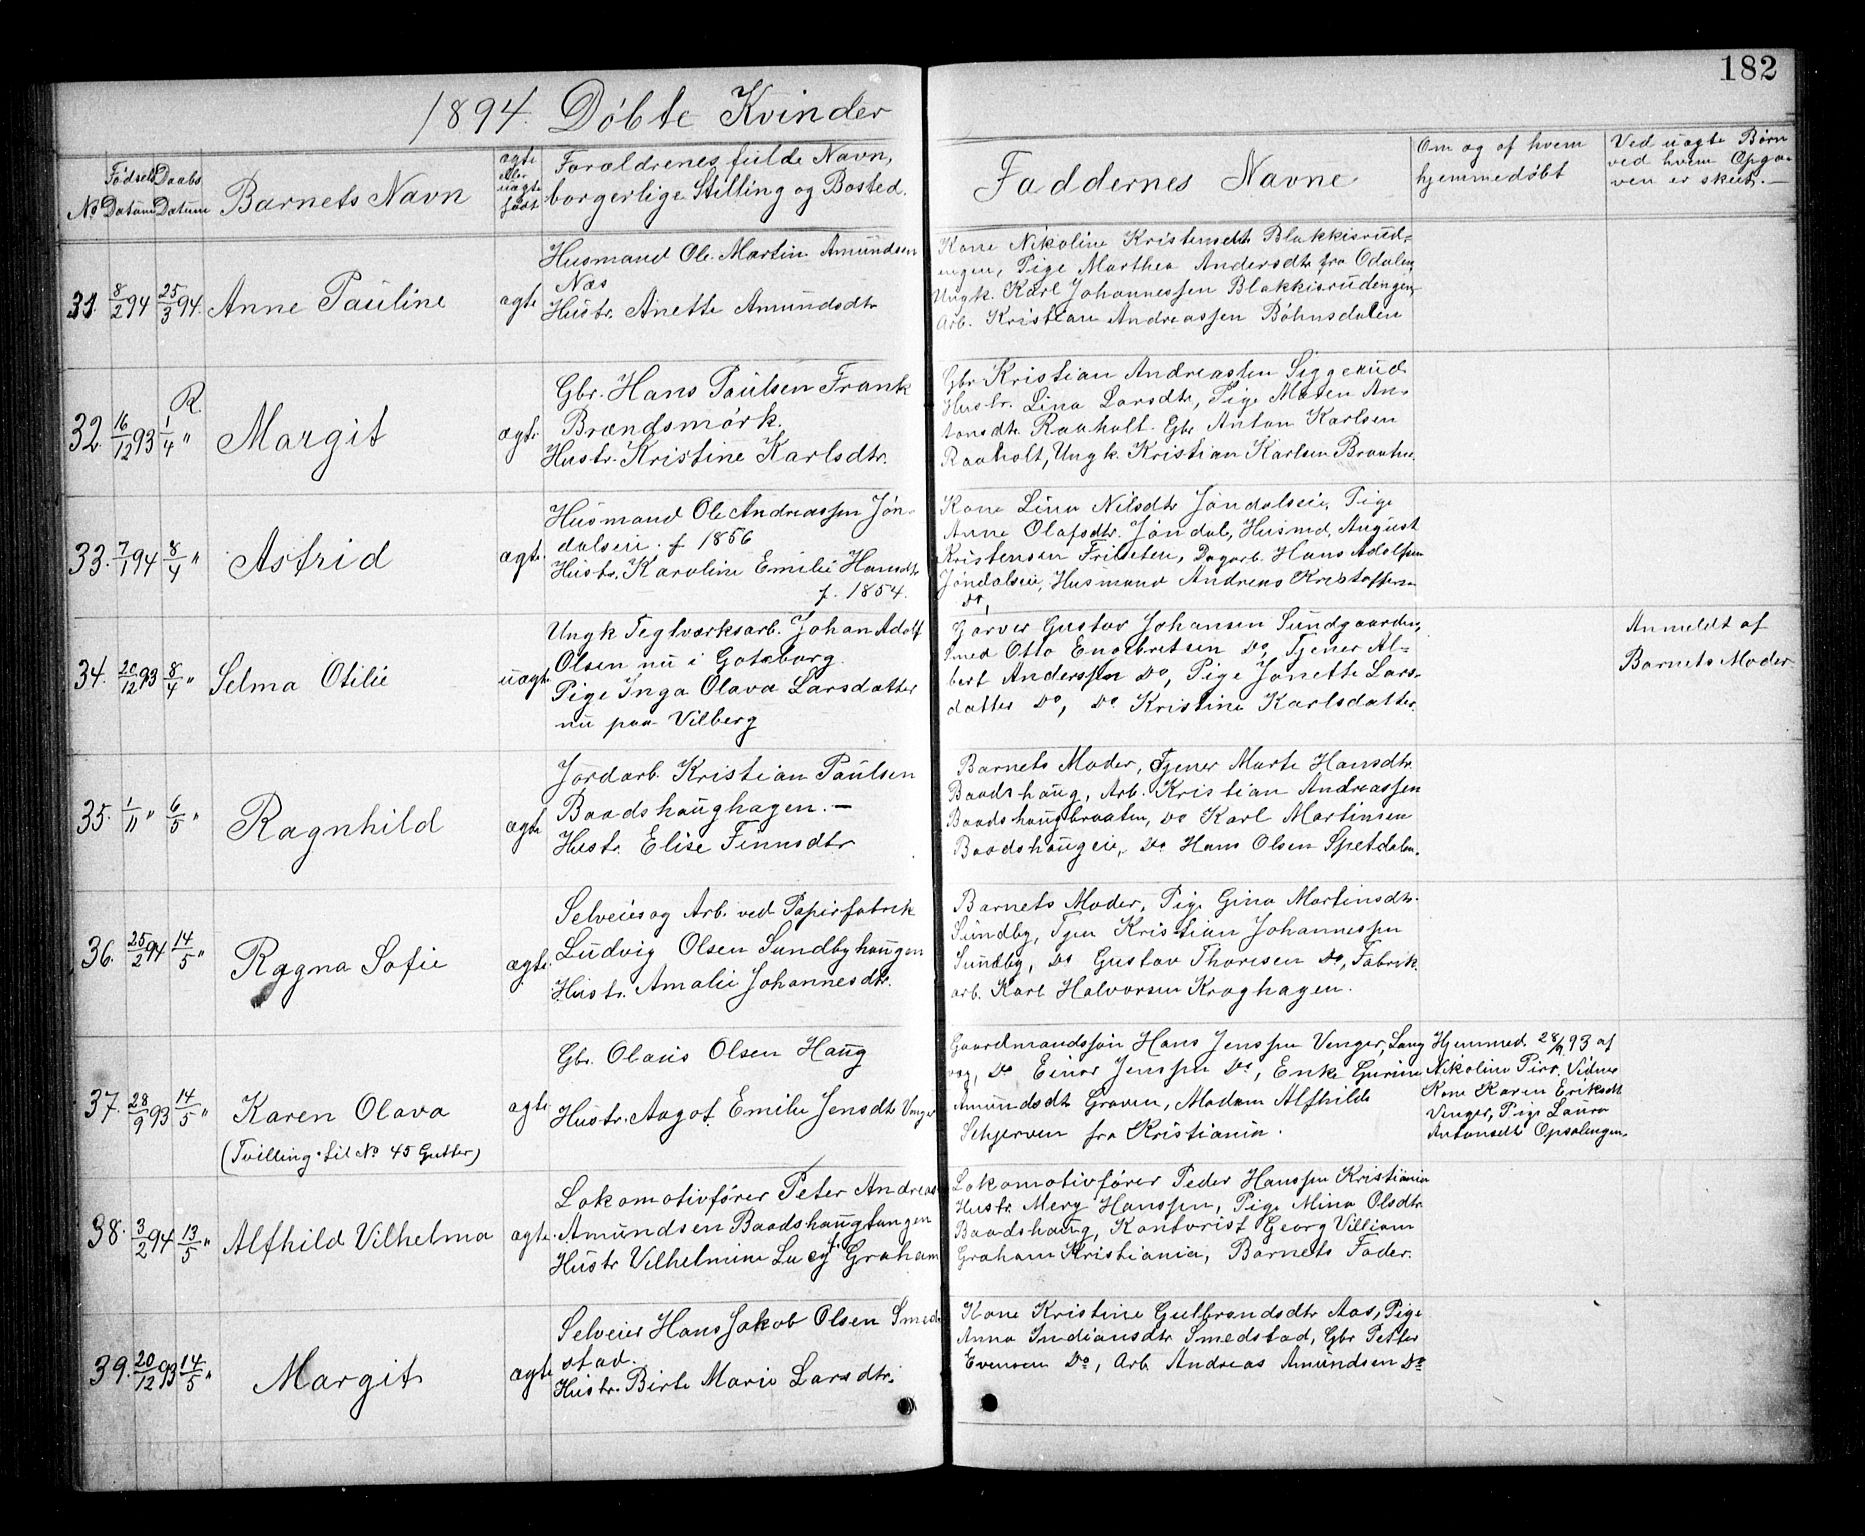 182
1894. Döbte Kvinder
No
Födsels Datum
Daabs Datum
Barnets Navn
ægte eller uægte födt
Forældrenes fulde Navn,
borgerlige Stilling og Bosted.
Faddernes Navne
Om og af hvem
hjemmedöbt
Ved uægte Børn
ved hvem Opga-
ven er skeet.—
31. 8/2 94 25/3 94. Anne Pauline ægte
Husmand Ole Martin Amundsen
Næs
Hustr. Anette Amundsdtr
Kone Nikoline Kristensdtr Blakkisrud-
engen, Pige Marthea Andersdtr fra Odalen,
Ungk. Karl Johannessen Blakkisrudengen,
Arb. Kristian Andreassen Böhnsdalen
R.
32. 16/12 93 1/4 " Margit ægte
Gbr. Hans Paulsen Frank
Brændsmörk.
Hustr. Kristine Karlsdtr.
Gbr Kristian Andreassen Siggerud
Hustr. Lina Larsdtr, Pige Maren An-
tonsdtr. Raaholt. Gbr Anton Karlsen
Raaholt, Ungk. Kristian Karlsen
33. 7/1 94 8/4 " Astrid ægte
Husmand Ole Andreassen Jön-
dalseie. f 1856
Hustr. Karoline Emilie Hansdtr
f. 1854.
Kone Lina Nilsdtr Jöndalseie, Pige
Anne Olafsdtr. Jöndal, Husmd. August
Kristensen Dagarb. Hans Adolfsen
Jöndalseie, Husmand Andreas Kristoffersen
Do,
34. 20/12 93 8/4 " Selma Otilie uægte
Ungk Teglværksarb. Johan Adolf
Olsen nu i Gøteborg.
Pige Inga Olava Larsdatter
nu paa Vilberg
Garver Gustav Johansen Sundgaarden,
Smed Otto Engebretsen Do, Tjener Al-
bert Anderssen Do, Pige Jonette Lars-
datter Do, Do Kristine Karlsdatter.
Anmeldt af
Barnets Moder
35. 1/11 " 6/5 " Ragnhild ægte
Jordarb. Kristian Paulsen
Baadshaughagen.—
Hustr. Elise Finnsdtr
Barnets Moder, Tjener Marte Hansdtr.
Baadshaug, Arb. Kristian Andreassen
Baadshaugbraaten, Do Karl Martinsen
Baadshaugeie, Do Hans Olsen Spetdalen.
36. 25/2 94 14/5 " Ragna Sofie ægte
Selveier og Arb. ved Papirfabrik
Ludvig Olsen Sundbyhaugen
Hustr. Amalie Johannesdtr.
Barnets Moder, Pige Gina Martinsdtr.
Sundby, Tjen Kristian Johannessen
Sundby, Do Gustav Thoresen Do, Fabrik-
arb. Karl Halvorsen Kroghagen.
37. 28/9 93 14/5 " Karen Olava ægte
(Tvilling til No 45 Gutter)
Gbr. Olaus Olsen Haug
Hustr. Aagot Emilie Jensdtr Venger
Gaardmandssön Hans Jenssen Venger, Lang
Do Einar Jenssen Do, Enke Gurine
Amundsdtr Graven, Madam Alfhilde
Schjerven fra Kristiania.
Hjemmed. 28/9 93 af
Nikoline Vidner
Kone Karen Eriksdtr
Venger, Pige Laura
Antonsdtr Opsalengen.
38. 3/2 94 13/5 " Alfhild Vilhelma ægte
Lokomotivförer Peter Andreas
Amundsen Baadshaugtangen
Hustr Vilhelmine Lucy Graham
Lokomotivförer Peder Hanssen Kristiania
Hustr. Mery Hanssen, Pige Mina Olsdtr
Baadshaug, Kontorist Georg Villiam
Graham Kristiania, Barnets Fader.
39. 20/12 93 14/5 " Margit ægte
Selveier Hans Jakob Olsen Smed-
stad.
Hustr. Birte Marie Larsdtr.
Kone Kristine Gulbrandsdtr Aas, Pige
Anna Smedstad, Gbr Petter
Evensen Do, Arb. Andreas Amundsen Do